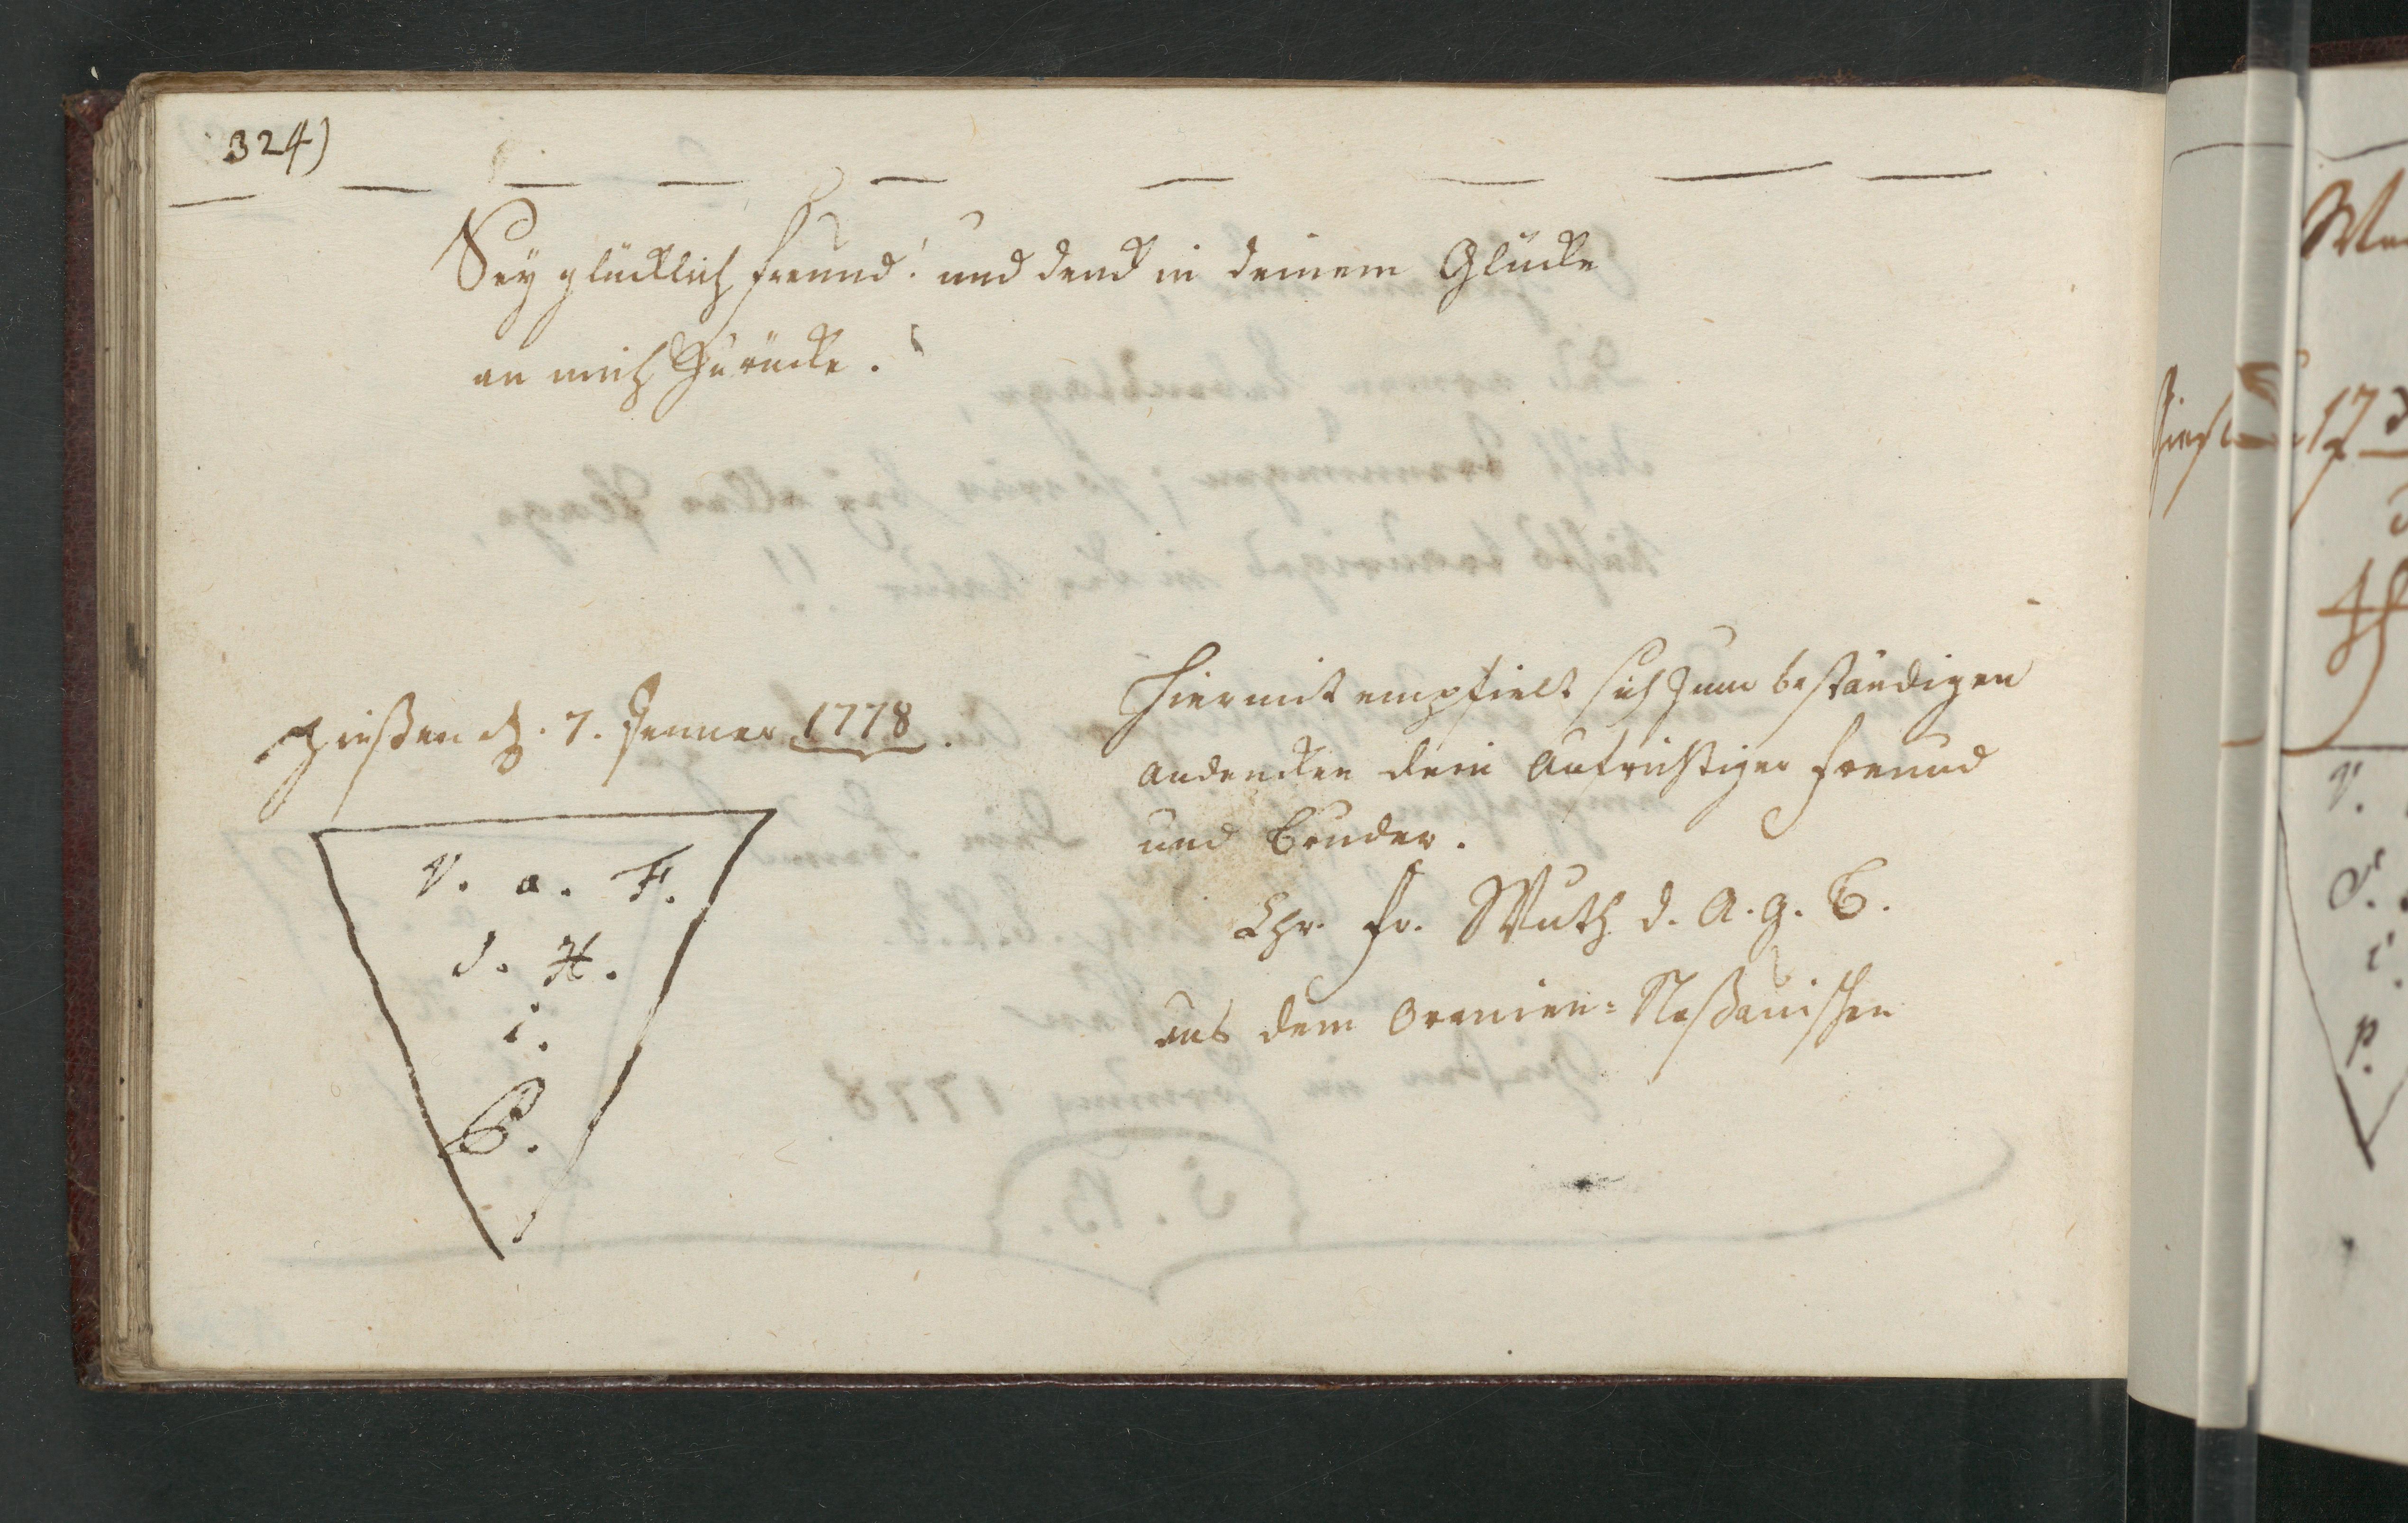 324)
Sey glücklich Freund! und denck in deinem Glücke
an mich Zurücke.
Giesen d. 7. Jenner 1778.
V. a. F.
d. H.
i.
B.
Hiermit empfielt sich zum beständigen
Andencken dein Aufrichtiger Freund
und Bruder.
Chr. Fr. Wuth d. A. G. B.
aus dem Oranien=Naßauischen